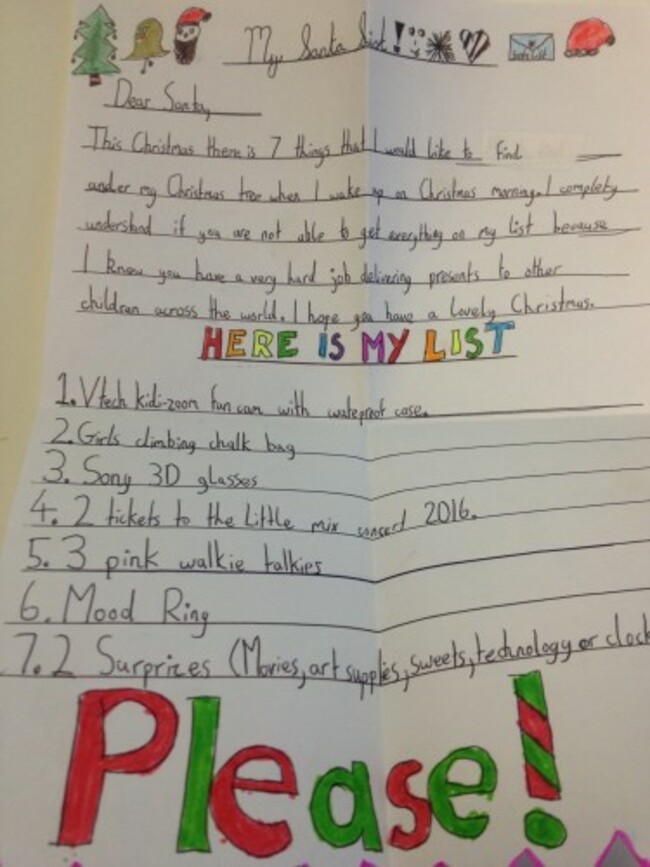 My Santa List!
Dear Santa,
This Christmas there is 7 things that I would like to find
under my Christmas tree when I wake up on Christmas morning. I complety
understand if you are not able to get everything on my list because
I know you have a very hard job delivering presents to other
children across the world. I hope you have a lovely Christmas.
HERE IS MY LIST
1. Vtech kidi-zoom fun cam with wateproof case.
2. Girls climbing chalk bag
3. Sony 3D glasses
4. 2 tickets to the Little mix concert 2016.
5. 3 pink walkie talkies
6. Mood Ring
7. 2 Surprizes (Movies, art supplies, sweets, technology or clock
Please!